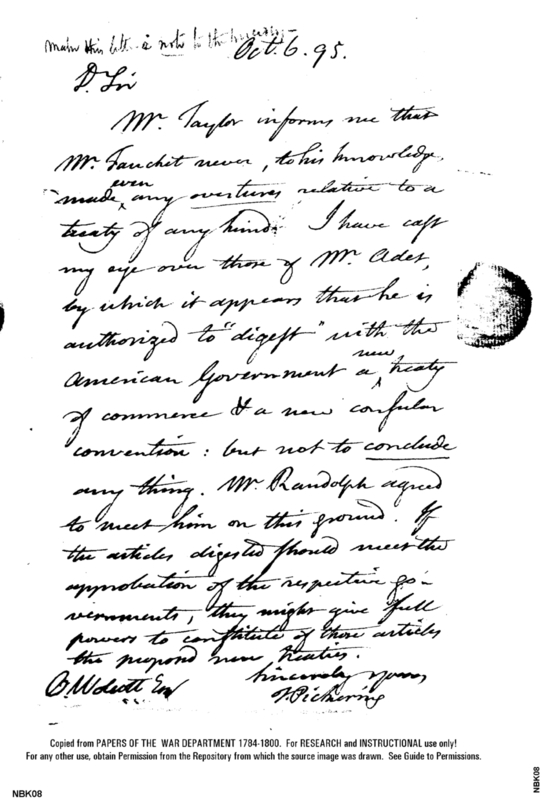 make this lett. a note to the
Oct. 6. 95.
D. Sir
Mr. Taylor informs me that
Mr. Fauchet never, to his knowledge,
even
made any overtures relative to a
treaty of any kind. I have cast
my eye over those of Mr. Adet,
by which it appears that he is
authorized to "digest" with the
new
American Government a treaty
of commerce & a new consular
convention: but not to conclude
any thing. Mr. Randolph agreed
to meet him on this ground. If
the articles digested should meet the
approbation of the respective go-
vernments, they might give full
powers to constitute of those articles
the proposed new treaties.
Sincerely yours
O. Wolcott Esq T. Pickering
Copied from PAPERS OF THE WAR DEPARTMENT 1784-1800. For RESEARCH and INSTRUCTIONAL use only!
For any other use, obtain Permission from the Repository from which the source image was drawn. See Guide to Permissions.
NBK08
NBK08